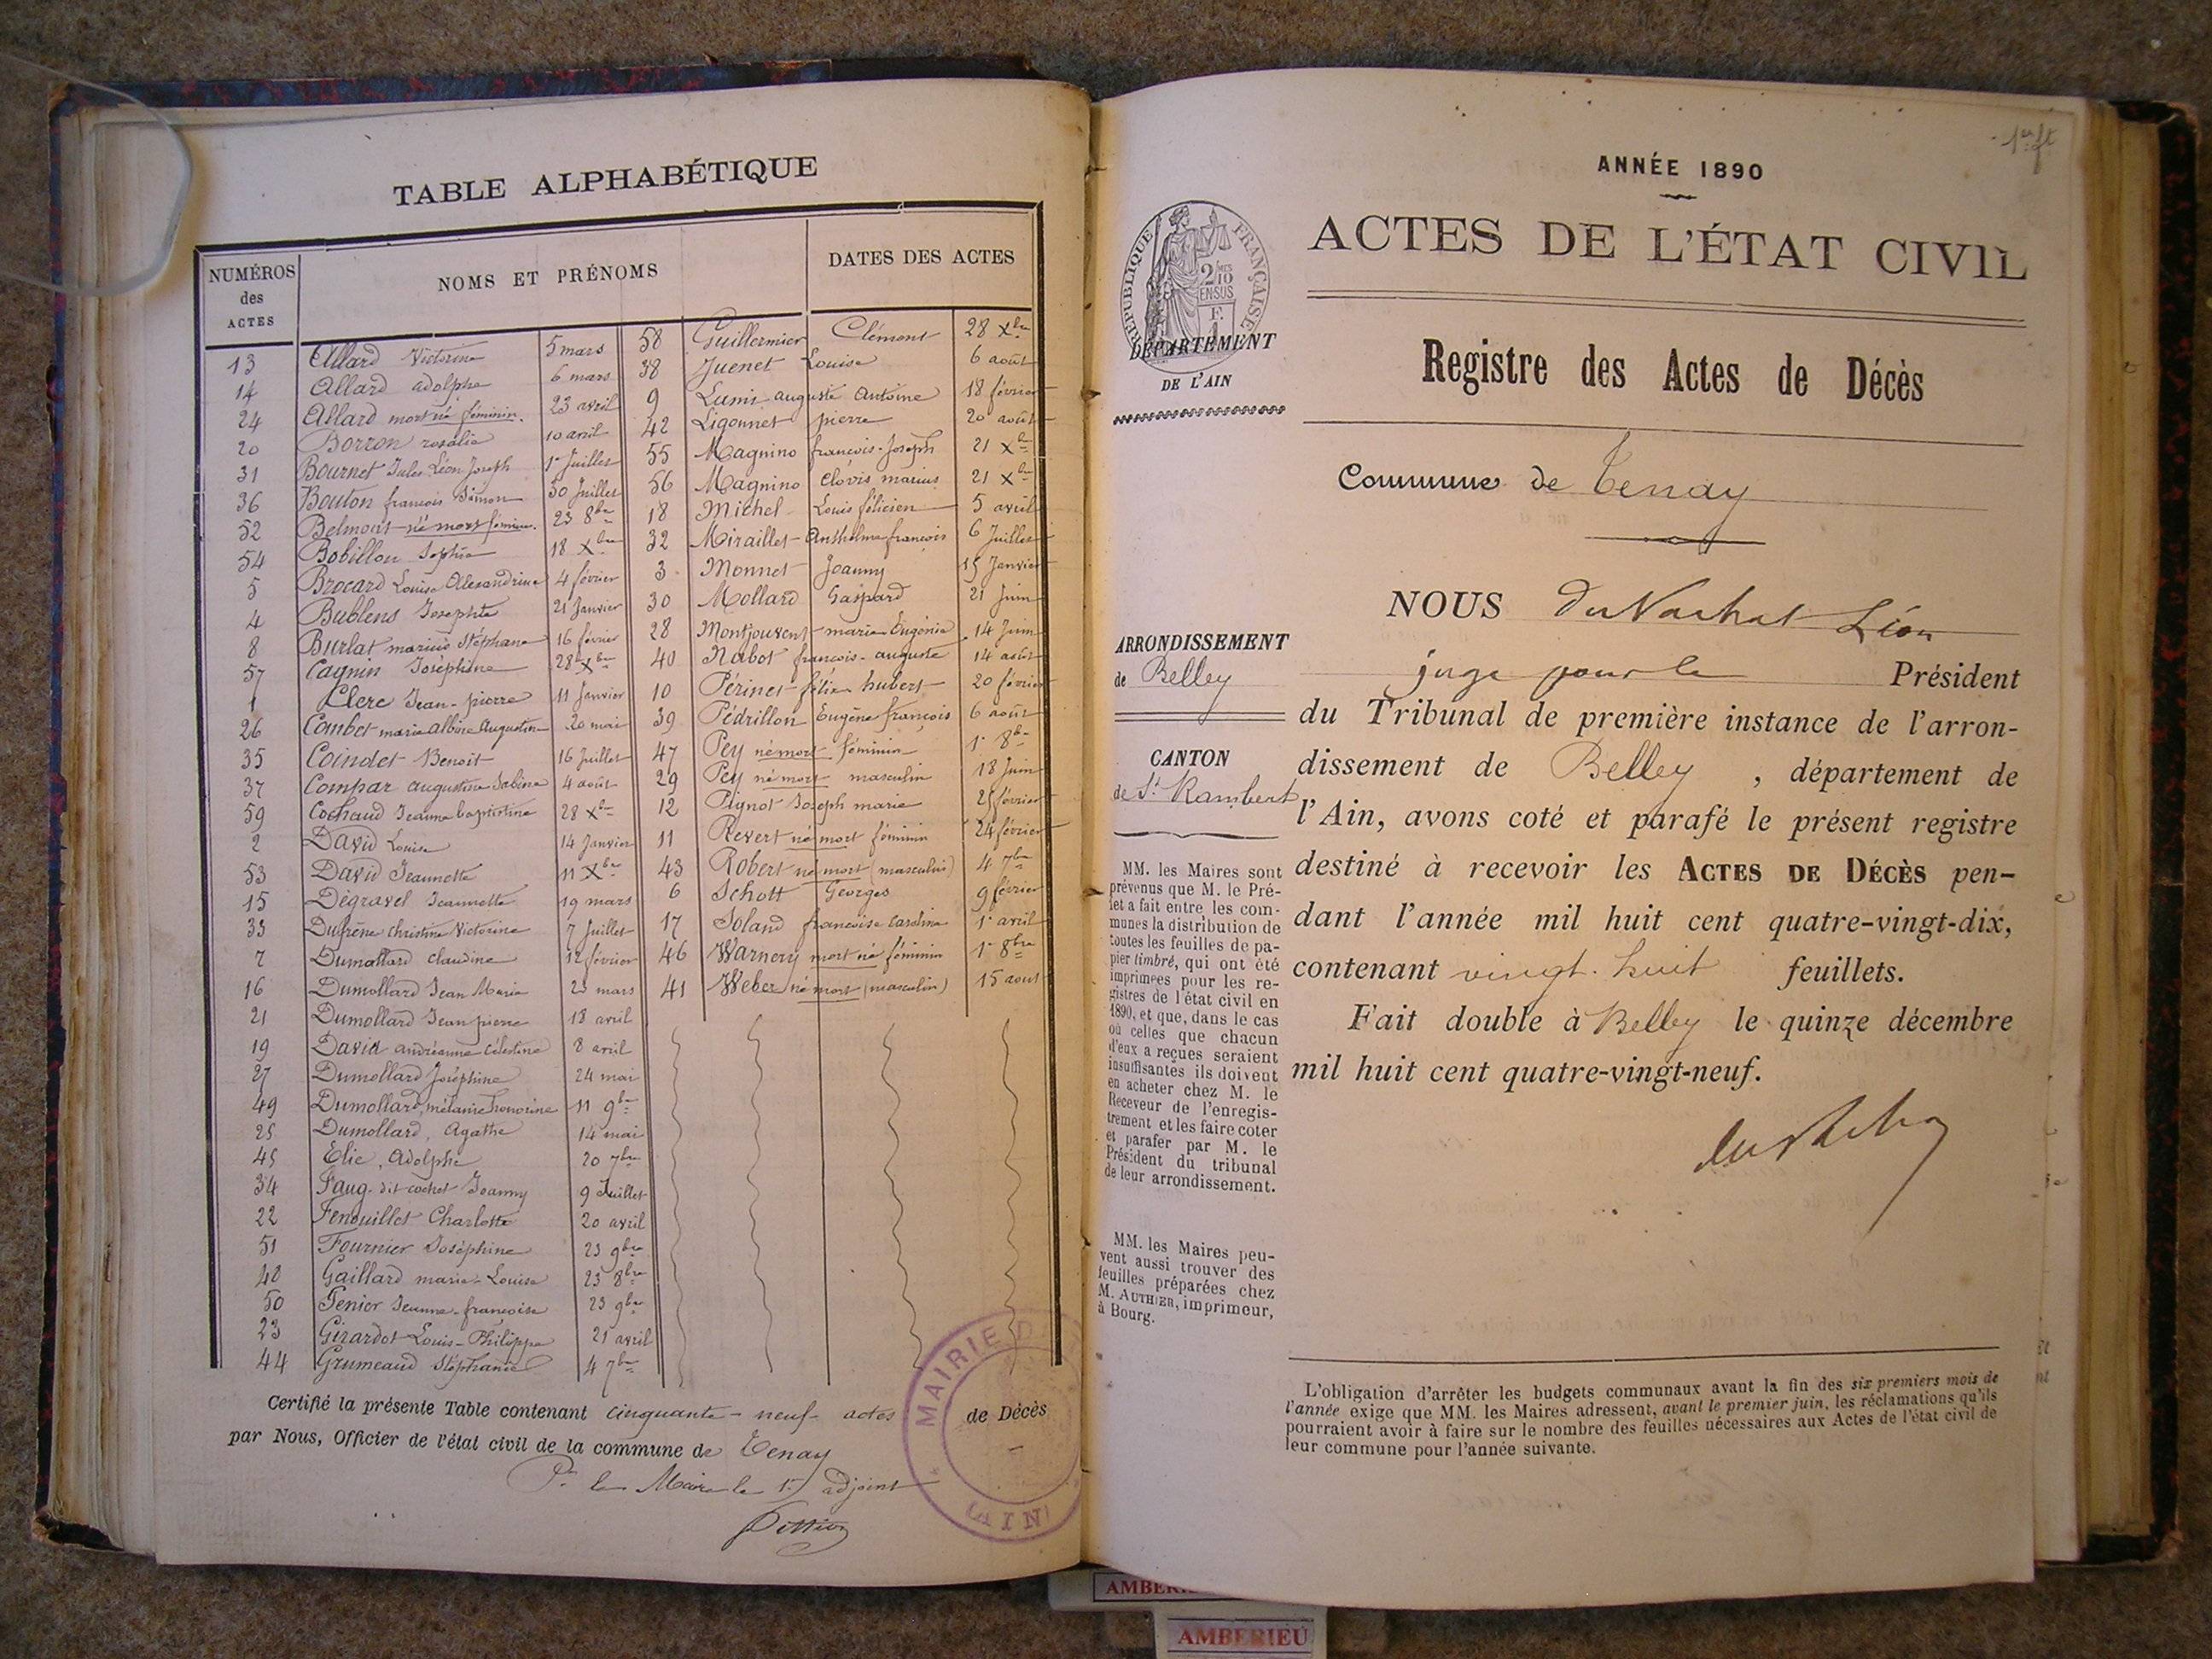 TABLE ALPHABÉTIQUE
NUMÉROS
des
ACTES
NOMS ET PRÉNOMS
DATES DES ACTES
13 Allard Victorine 5 mars
14 Allard adolphe 6 mars
24 Allard mort né féminin. 23 avril
20 Borron rosalie 10 avril
31 Bournet Jules Léon Joseph 1er Juillet
36 Bouton francois Simon 30 Juillet
52 Belmont né mort féminin. 23 8bre
54 Bobillon Sophie 18 Xbre
5 Brocard Louise Alexandrine 4 février
4 Bublens Josephte 21 Janvier
8 Burlat marius Stéphane 16 février
57 Cagnin Joséphine 28 Xbre
1 Clerc Jean-pierre 11 Janvier
26 Combet marie albine Augustine 20 mai
35 Coindet Benoit 16 Juillet
37 Compar augustine Sabine 4 août
59 Cochaud Jeanne baptistine 28 Xbre
2 David Louise 14 Janvier
53 David Jeannette 11 Xbre
15 Dégravel Jeannette 19 mars
33 Dufrène christine Victorine 7 Juillet
7 Dumollard claudine 12 février
16 Dumollard Jean Marie 23 mars
21 Dumollard Jean pierre 18 avril
19 David andréanne célestine 8 avril
27 Dumollard Joséphine 24 mai
49 Dumollard, mélanie honorine 11 9bre
25 Dumollard, Agathe 14 mai
45 Elie, Adolphe 20 7bre
34 Faug dit cochet Joanny 9 Juillet
22 Fenouillet Charlotte 20 avril
51 Fournier Joséphine 23 9bre
48 Gaillard marie-Louise 23 8bre
50 Genier Jeanne-françoise 23 9bre
23 Girardot Louis-Philippe 21 avril
44 Grumeaud Stéphanie 4 7bre
58 Guillermier Clément 28 Xbre
38 Juenet Louise 6 août
9 Lumi auguste Antoine 18 février
42 Ligonnet pierre 20 août
55 Magnino francois-Joseph 21 Xbre
56 Magnino clovis marius 21 Xbre
18 Michel Louis félicien 5 avril
32 Miraillet Anthelme françois 6 Juillet
3 Monnet Joanny 15 Janvier
30 Mollard Gaspard 21 Juin
28 Montjouvent marie Eugénie 14 Juin
40 Nabot francois-auguste 14 août
10 Périnet félix hubert 20 février
39 Pédrillon Eugène françois 6 août
47 Pey né mort féminin 1er 8bre
29 Pey né mort masculin 18 Juin
12 Pignot Joseph marie 25 février
11 Revert né mort féminin 24 février
43 Robert né mort (masculin) 4 7bre
6 Schott Georges 9 février
17 Soland francoise caroline 1er avril
46 Warnery mort né féminin 1er 8bre
41 Weber né mort (masculin) 15 août
Certifié la présente Table contenant cinquante-neuf actes de Décès
par Nous, Officier de l'état civil de la commune de Tenay
Pr le Maire le 1er adjoint
MAIRIE D
(AIN)
1er ft
ANNÉE 1890
ACTES DE L'ÉTAT CIVIL
Registre des Actes de Décès
Commune de Tenay
RÉPUBLIQUE FRANÇAISE
2 10
EN SUS
F.
1
DÉPARTEMENT
DE L'AIN
ARRONDISSEMENT
de Belley
CANTON
de St Rambert
MM. les Maires sont
prévenus que M. le Pré-
fet a fait entre les com-
munes la distribution de
toutes les feuilles de pa-
pier timbré, qui ont été
imprimées pour les re-
gistres de l'état civil en
1890, et que, dans le cas
où celles que chacun
d'eux a reçues seraient
insuffisantes ils doivent
en acheter chez M. le
Receveur de l'enregis-
trement et les faire coter
et parafer par M. le
Président du tribunal
de leur arrondissement.
MM. les Maires peu-
vent aussi trouver des
feuilles préparées chez
M. AUTHIER, imprimeur,
à Bourg.
NOUS du Vachat Léon
juge pour le Président
du Tribunal de première instance de l'arron-
dissement de Belley, département de
l'Ain, avons coté et parafé le présent registre
destiné à recevoir les ACTES DE DÉCÈS pen-
dant l'année mil huit cent quatre-vingt-dix,
contenant vingt-huit feuillets.
Fait double à Belley le quinze décembre
mil huit cent quatre-vingt-neuf.
L'obligation d'arrêter les budgets communaux avant la fin des six premiers mois de
l'année exige que MM. les Maires adressent, avant le premier juin, les réclamations qu'ils
pourraient avoir à faire sur le nombre des feuilles nécessaires aux Actes de l'état civil de
leur commune pour l'année suivante.
AMBERIEU